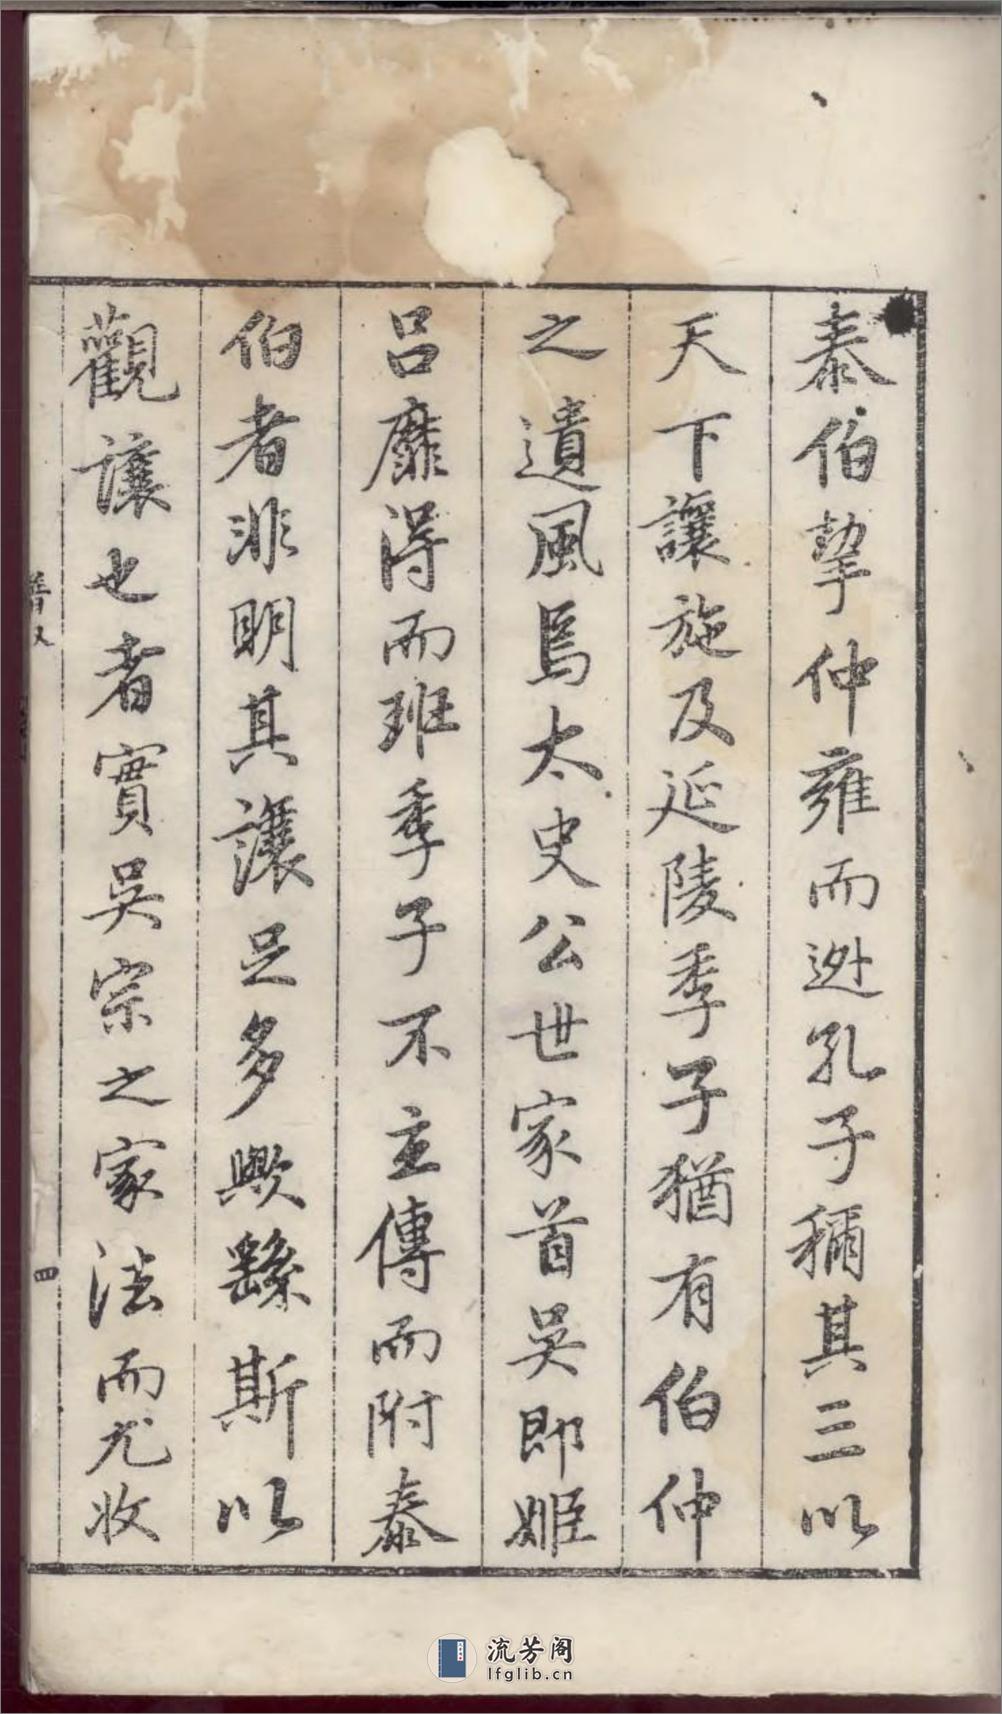 泰伯挈仲雍而逊孔子稱其三以
天下讓施及延陵季子猶有伯仲
之遺風焉太史公世家首吴即姬
吕靡得而班季子不立傳而附泰
伯者非明其讓足多歟繇斯以
觀讓也者實吴宗之家法而尤收
四
流芳阁
lfglib.cn